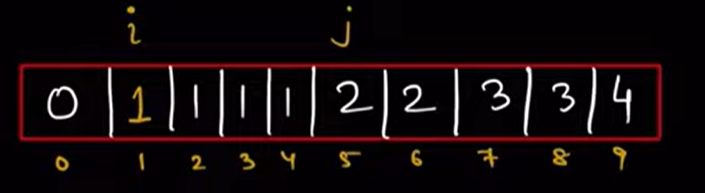 i j
0 1 1 1 1 2 2 3 3 4
0 1 2 3 4 5 6 7 8 9